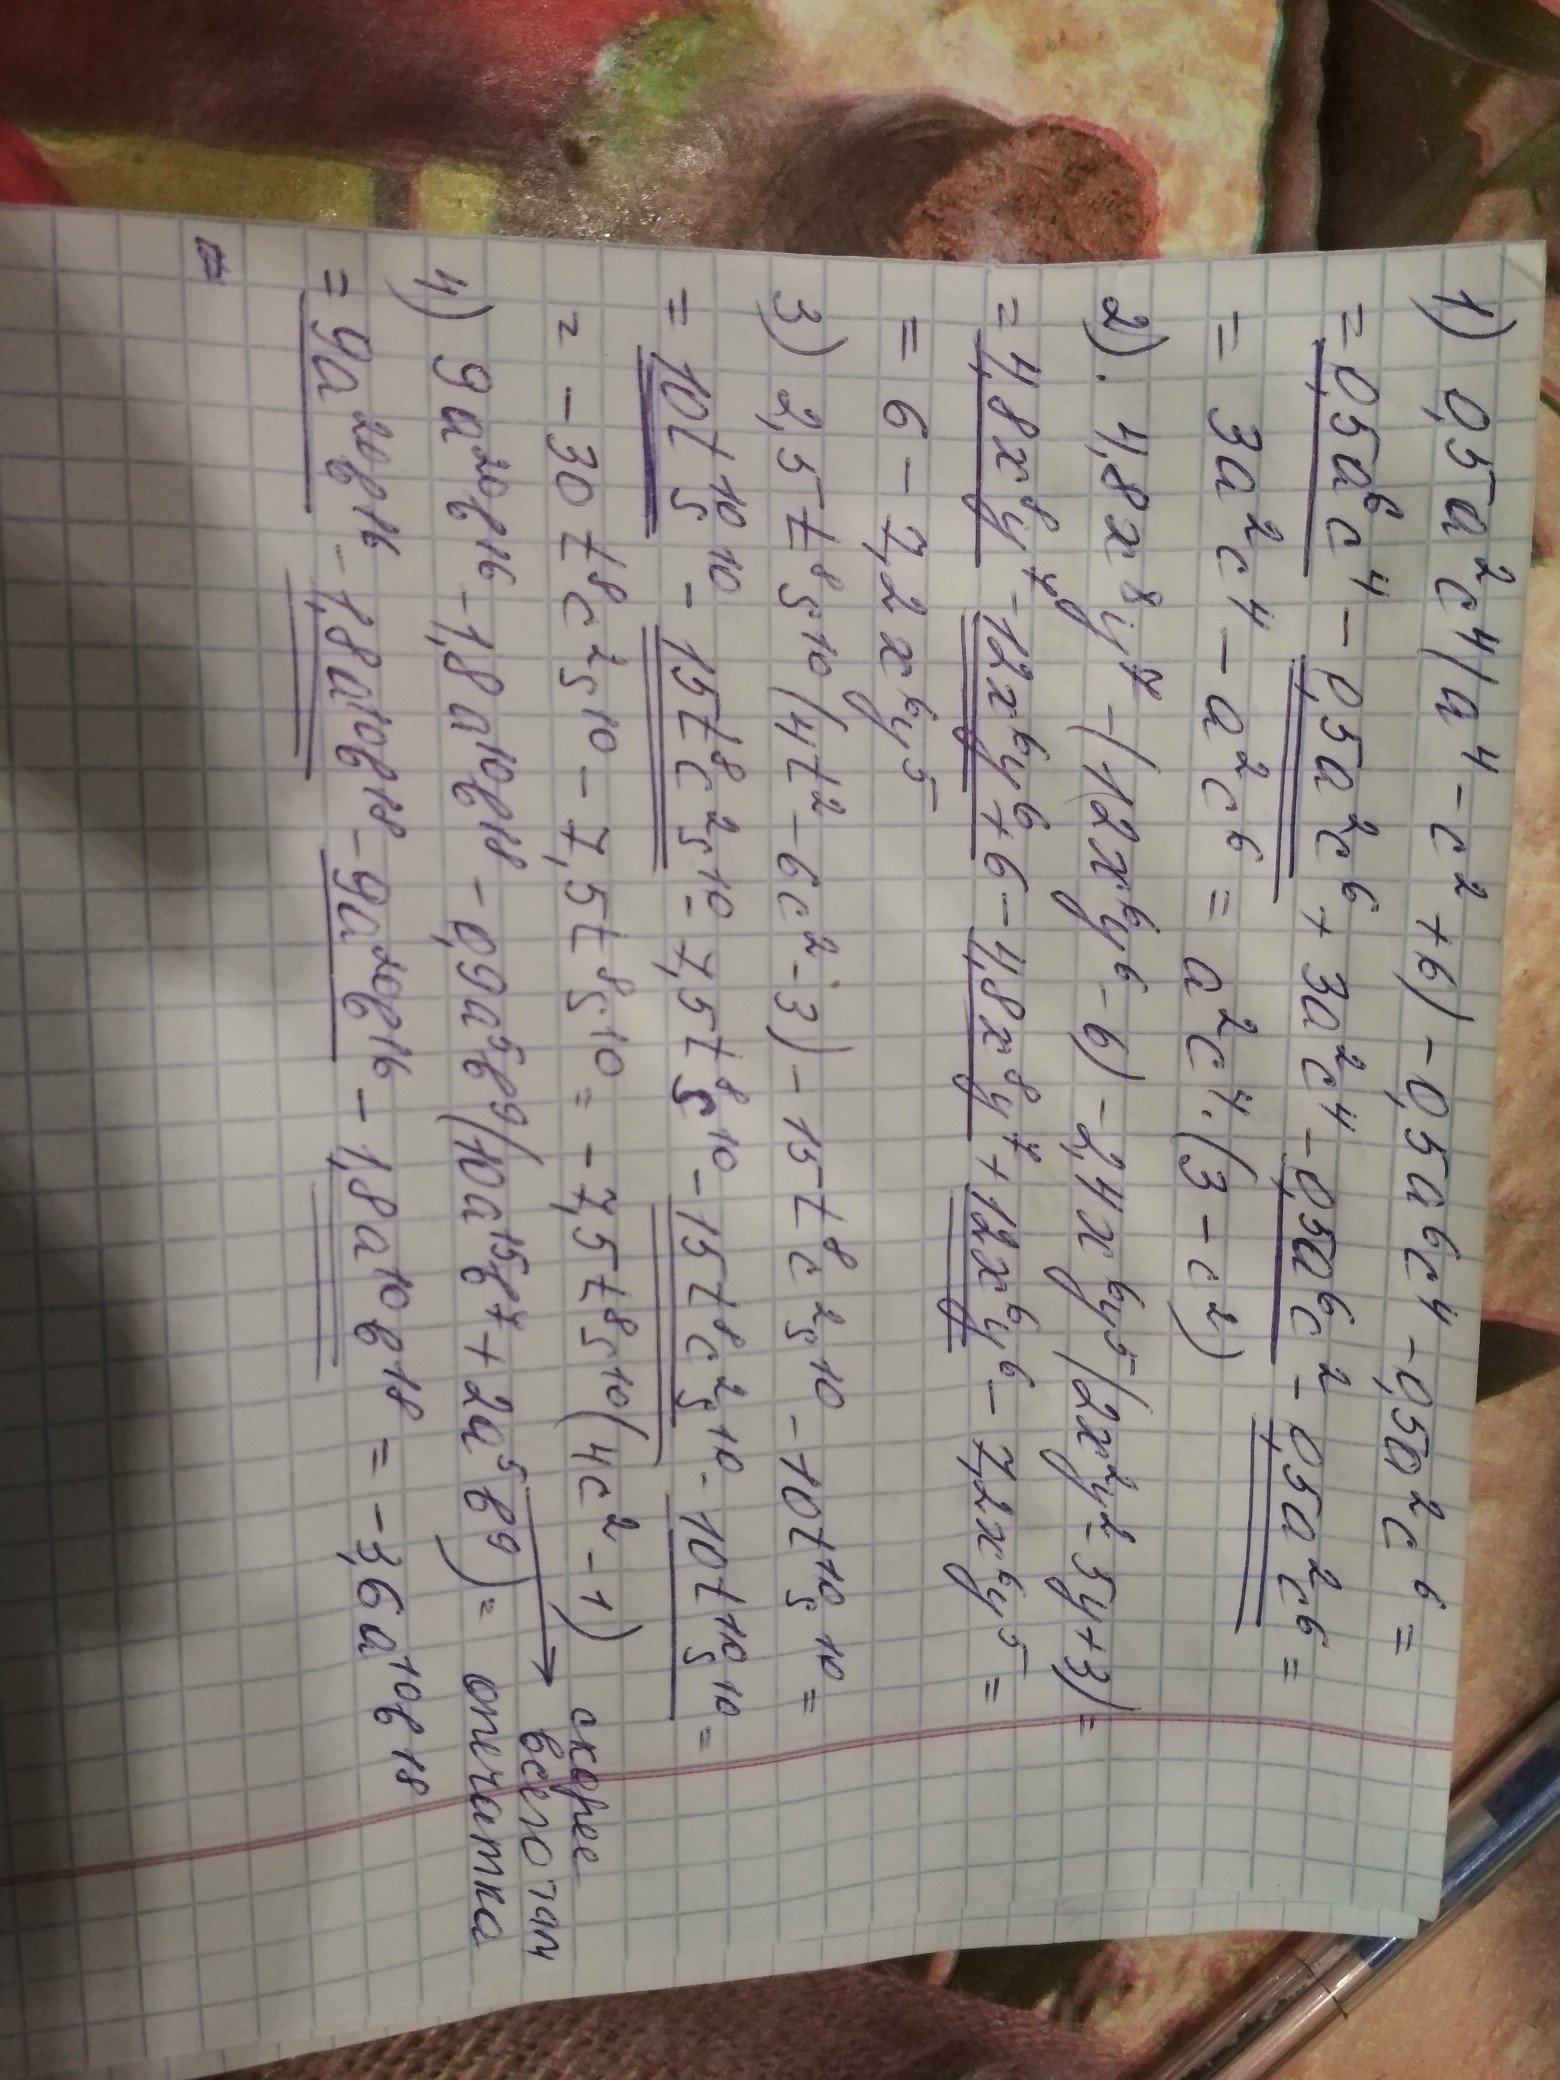 1) 0,5a²c⁴(a⁴-c²+6)-0,5a⁶c⁴-0,5a²c⁶=
=0,5a⁶c⁴-0,5a²c⁶+3a²c⁴-0,5a⁶c²-0,5a²c⁶=
=3a²c⁴-a²c⁶=a²c⁴·(3-c²)
2). 4,8x⁸y⁷-(12x⁶y⁶-6)-2,4x⁶y⁵(2x²y²-5y+3)=
=4,8x⁸y⁷-12x⁶y⁶+6-4,8x⁸y⁷+12x⁶y⁶-7,2x⁶y⁵=
=6-7,2x⁶y⁵
3) 2,5t⁸s¹⁰(4t²-6c²-3)-15t⁸c²s¹⁰-10t¹⁰s¹⁰=
=10t¹⁰s¹⁰-15t⁸c²s¹⁰-7,5t⁸s¹⁰-15t⁸c²s¹⁰-10t¹⁰s¹⁰=
=-30t⁸c²s¹⁰-7,5t⁸s¹⁰=-7,5t⁸s¹⁰(4c²-1)
4) 9a²⁰b¹⁶-1,8a¹⁰b¹⁸-0,9a⁵b⁹(10a¹⁵b⁷+2a⁵b⁹)= → скорее всего там опечатка
=9a²⁰b¹⁶-1,8a¹⁰b¹⁸-9a²⁰b¹⁶-1,8a¹⁰b¹⁸=-3,6a¹⁰b¹⁸